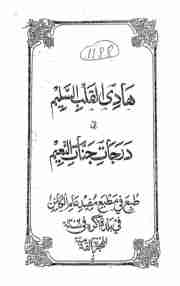 1188
هادي القلب السليم
الى
درجات جنات النعيم
طبع في مطبع مفيد عام الكائن
في بلدة آگره في سنة
الهجرة القدسية